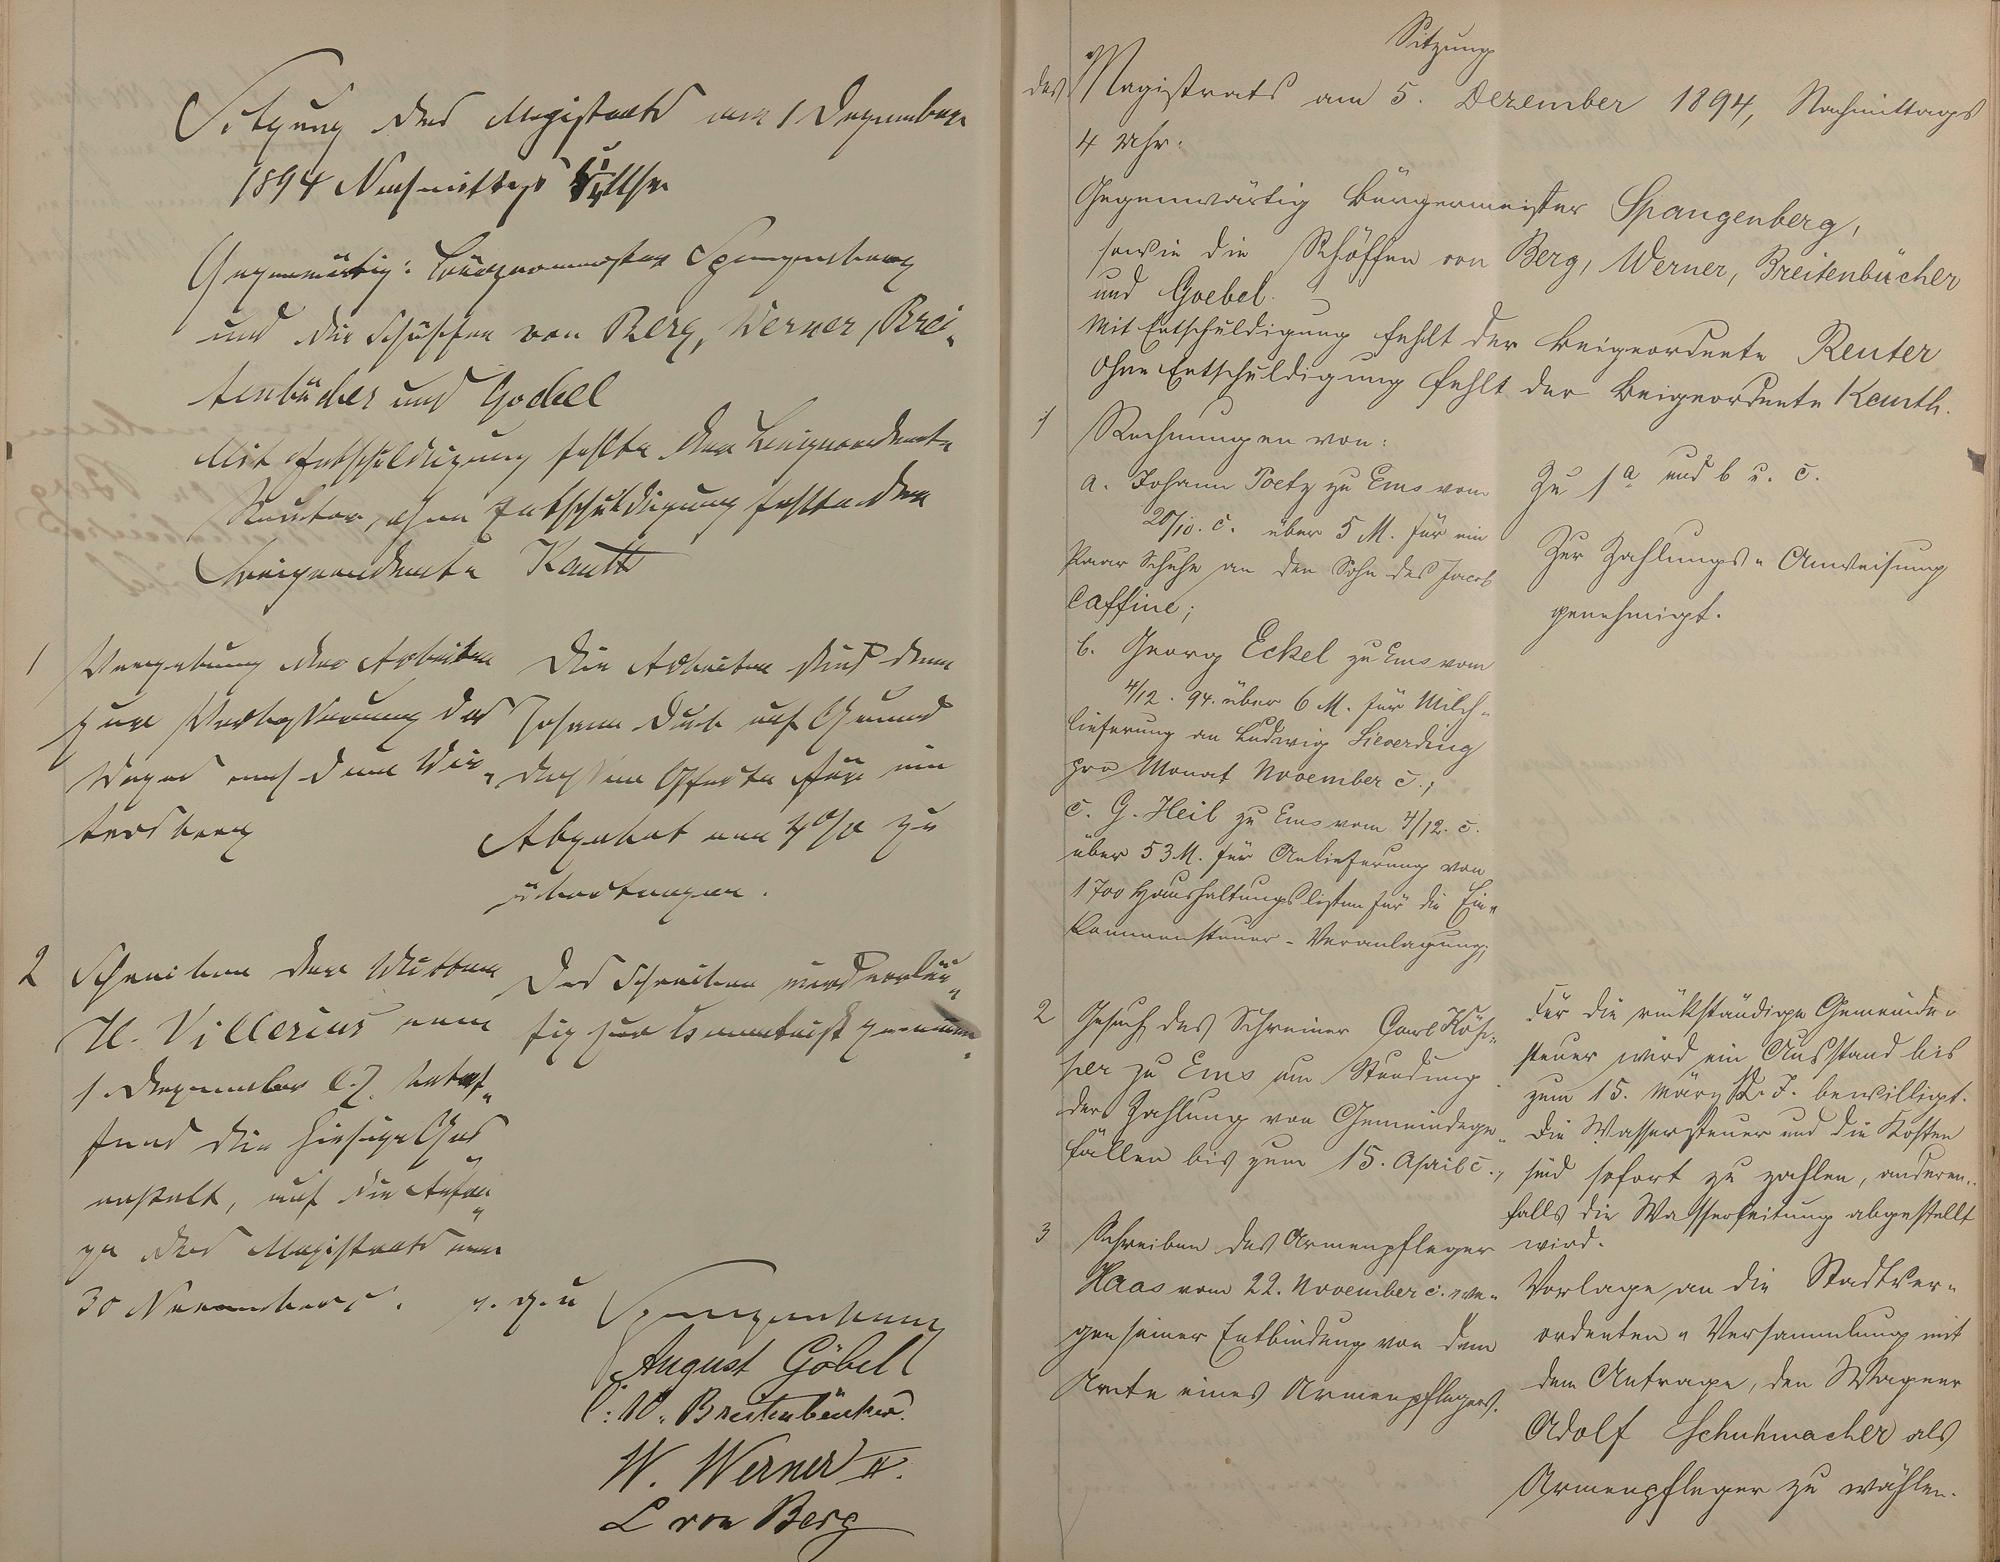 Sitzung des Magistrats am 1 Dezember
1894 Nachmittags Uhr
Gegenwärtig: Bürgermeister Spangenberg
und die Schöffen von Berg, Werner, Brei-
tenbücher und Goebel
Mit Entschuldigung fehlte der Beigeordnete
Reuter, ohne Entschuldigung fehlte der
Beigeordnete Kauth
1
Vergebung der Arbeiten
zur Verbesserung des
Weges nach dem Win-
tersberg
Die Arbeiten sind dem
Johann auf Grund
dessen Offerte für ein
Abgebot von 4% zu
übertragen.
2
Schreiben der Wittwe
H. Villerius vom
1 Dezember c. betref-
fend die hiesige Gas
anstalt, auf die Anfra-
ge des Magistrats vom
30 November c.
Das Schreiben wird vorläu-
fig zur Kenntniß genommen.
v. g. u
Spangenberg
August Göbel
C. W. Breitenbücher.
W. Werner II.
L von Berg
Sitzung
des Magistrats am 5. Dezember 1894, Nachmittags
4 Uhr.
Gegenwärtig Bürgermeister Spangenberg,
sowie die Schöffen von Berg, Werner, Breitenbücher
und Goebel.
Mit Entschuldigung fehlt der Beigeordnete Reuter
Ohne Entschuldigung fehlt der Beigeordnete Kauth.
1
Rechnungen von:
a. Johann Poetz zu Ems vom
20/10. c. über 5 M. für ein
Paar Schuhe an den Sohn des Jacob
Caffine;
b. Georg Eckel zu Ems vom
4/12. 94. über 6 M. für Milch-
lieferung an Ludwig Sieverding
pro Monat November c.;
c. G. Heil zu Ems vom 4/12. c.
über 53 M. für Anlieferung von
1700 Haushaltungslisten für die Ein-
kommensteuer-Veranlagung;
Zu 1a und b u. c.
Zur Zahlungs-Anweisung
genehmigt.
2
Gesuch des Schreiner Carl Köh-
ler zu Ems um Stundung
der Zahlung von Gemeindege-
fällen bis zum 15. April c.,
Für die rückständige Gemeinde-
steuer wird ein Ausstand bis
zum 15. März k. J. bewilligt.
Die Wassersteuer und die Kosten
sind sofort zu zahlen, anderen-
falls die Wasserleitung abgestellt
wird.
3
Schreiben des Armenpfleger
Haas vom 22. November c. we-
gen seiner Entbindung von dem
Amte eines Armenpflegers.
Vorlage an die Stadtver-
ordneten-Versammlung mit
dem Antrage, den Wagner
Adolf Schuhmacher als
Armenpfleger zu wählen.